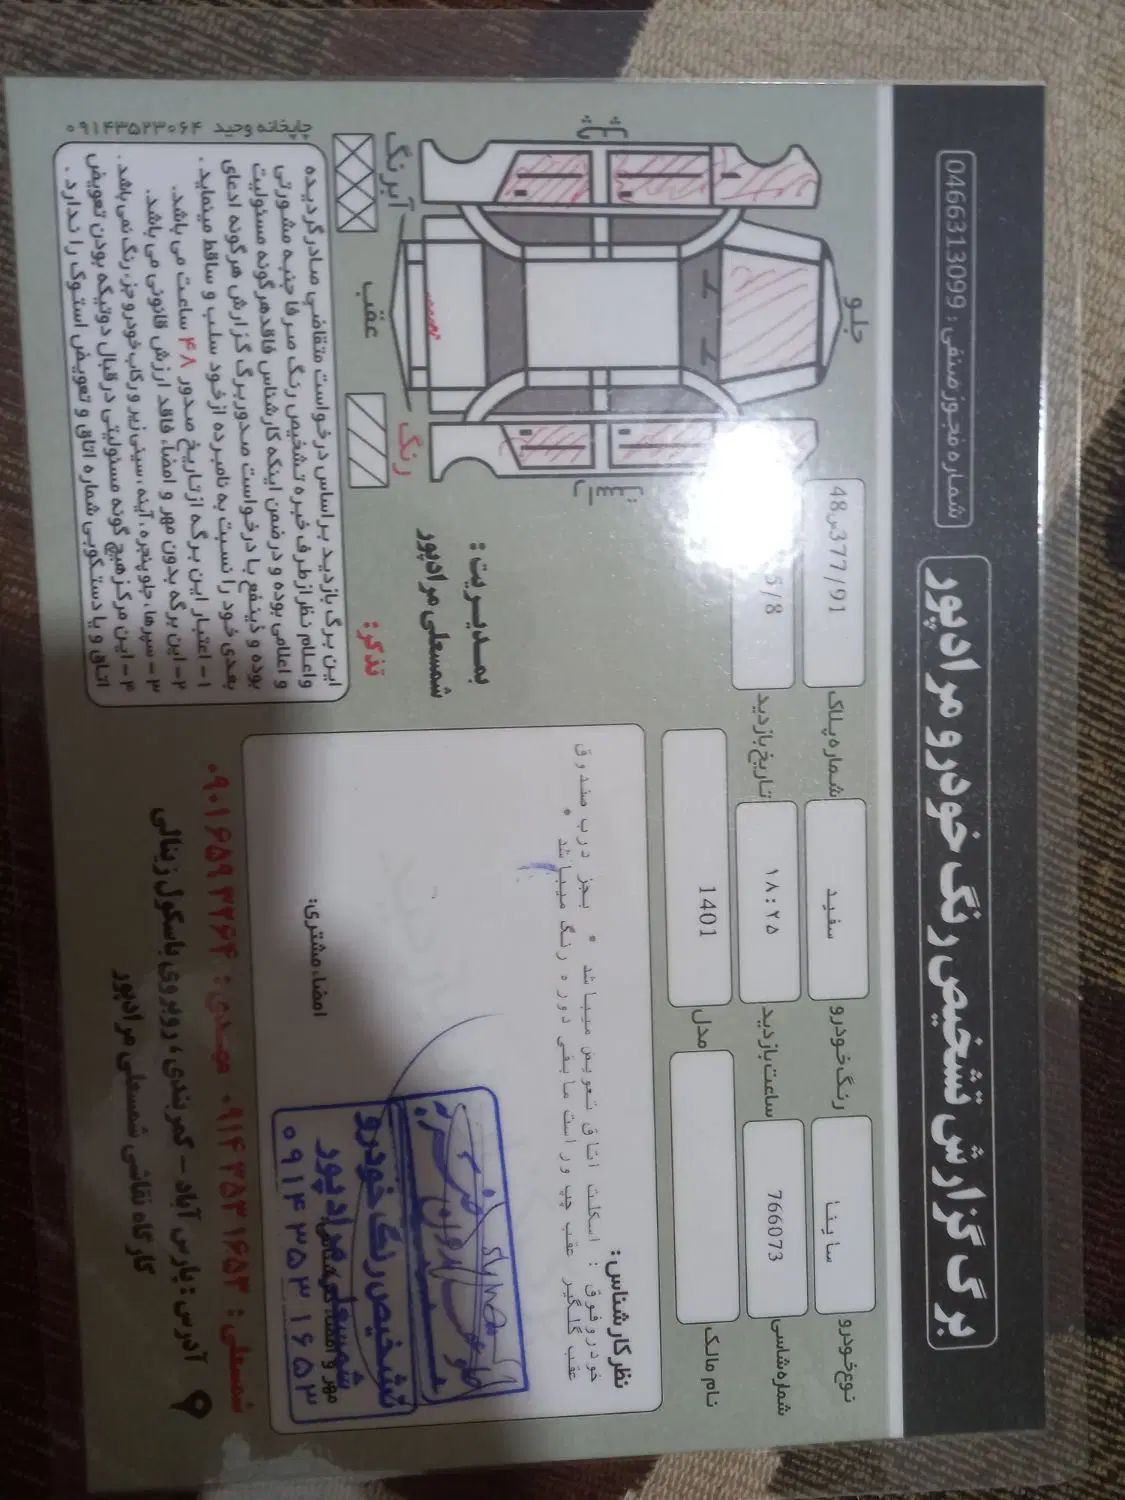 برگ گزارش تشخیص رنگ خودرو مرادپور
شماره مجوز صنفی : 0466313099
نوع خودرو
ساینا
رنگ خودرو
سفید
شماره پلاک
48س377/91
شماره شاسی
766073
ساعت بازدید
۱۸:۲۵
تاریخ بازدید
5/8
نام مالک
مدل
1401
نظر کارشناس:
خودرو فوق : اسکلت اتاق تعویض میباشد . بجز درب صندوق
عقب گلگیر عقب چپ و راست مابقی دوره رنگ میباشد .
امضاء مشتری:
مهر و امضاء کارشناس
تشخیص رنگ خودرو
شمسعلی مرادپور
۰۹۱۴۳۵۳۱۶۵۳
جلو
عقب
رنگ
آبرنگ
بمدیریت :
شمسعلی مرادپور
تذکر:
این برگ بازدید بر اساس درخواست متقاضی صادر گردیده
و اعلام نظر از طرف خبره تشخیص رنگ صرفا جنبه مشورتی
و اعلامی بوده و در ضمن اینکه کارشناس فاقد هر گونه مسئولیت
بوده و ذینفع با درخواست صدور برگ گزارش هر گونه ادعای
بعدی خود را نسبت به نامبرده از خود سلب و ساقط مینماید.
۱- اعتبار این برگه از تاریخ صدور ۴۸ ساعت می باشد.
۲- این برگه بدون مهر و امضاء فاقد ارزش قانونی می باشد.
۳- سپرها، جلو پنجره، آینه، سینی زیر و رکاب خودرو جز، رنگ نمی باشد.
۴- این مرکز هیچ گونه مسئولیتی در قبال دوتیکه بودن تعویض
اتاق و یا دستکوبی شماره اتاق و تعویض استوک را ندارد.
چاپخانه وحید ۰۹۱۴۳۵۲۳۰۶۴
شمسعلی : ۰۹۱۴۳۵۳۱۶۵۳ مهدی : ۰۹۰۱۶۵۹۳۷۶۴
آدرس : پارس آباد - کمربندی ، روبروی باسکول زینالی
کارگاه نقاشی شمسعلی مرادپور